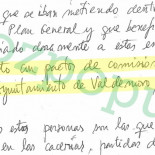 que se iban metiendo dentro
Plan General y que benefi
a estas en
to un pacto de comision
yuntamiento de Valdemoro
estas personas son las que
en las cacerías, partidas d